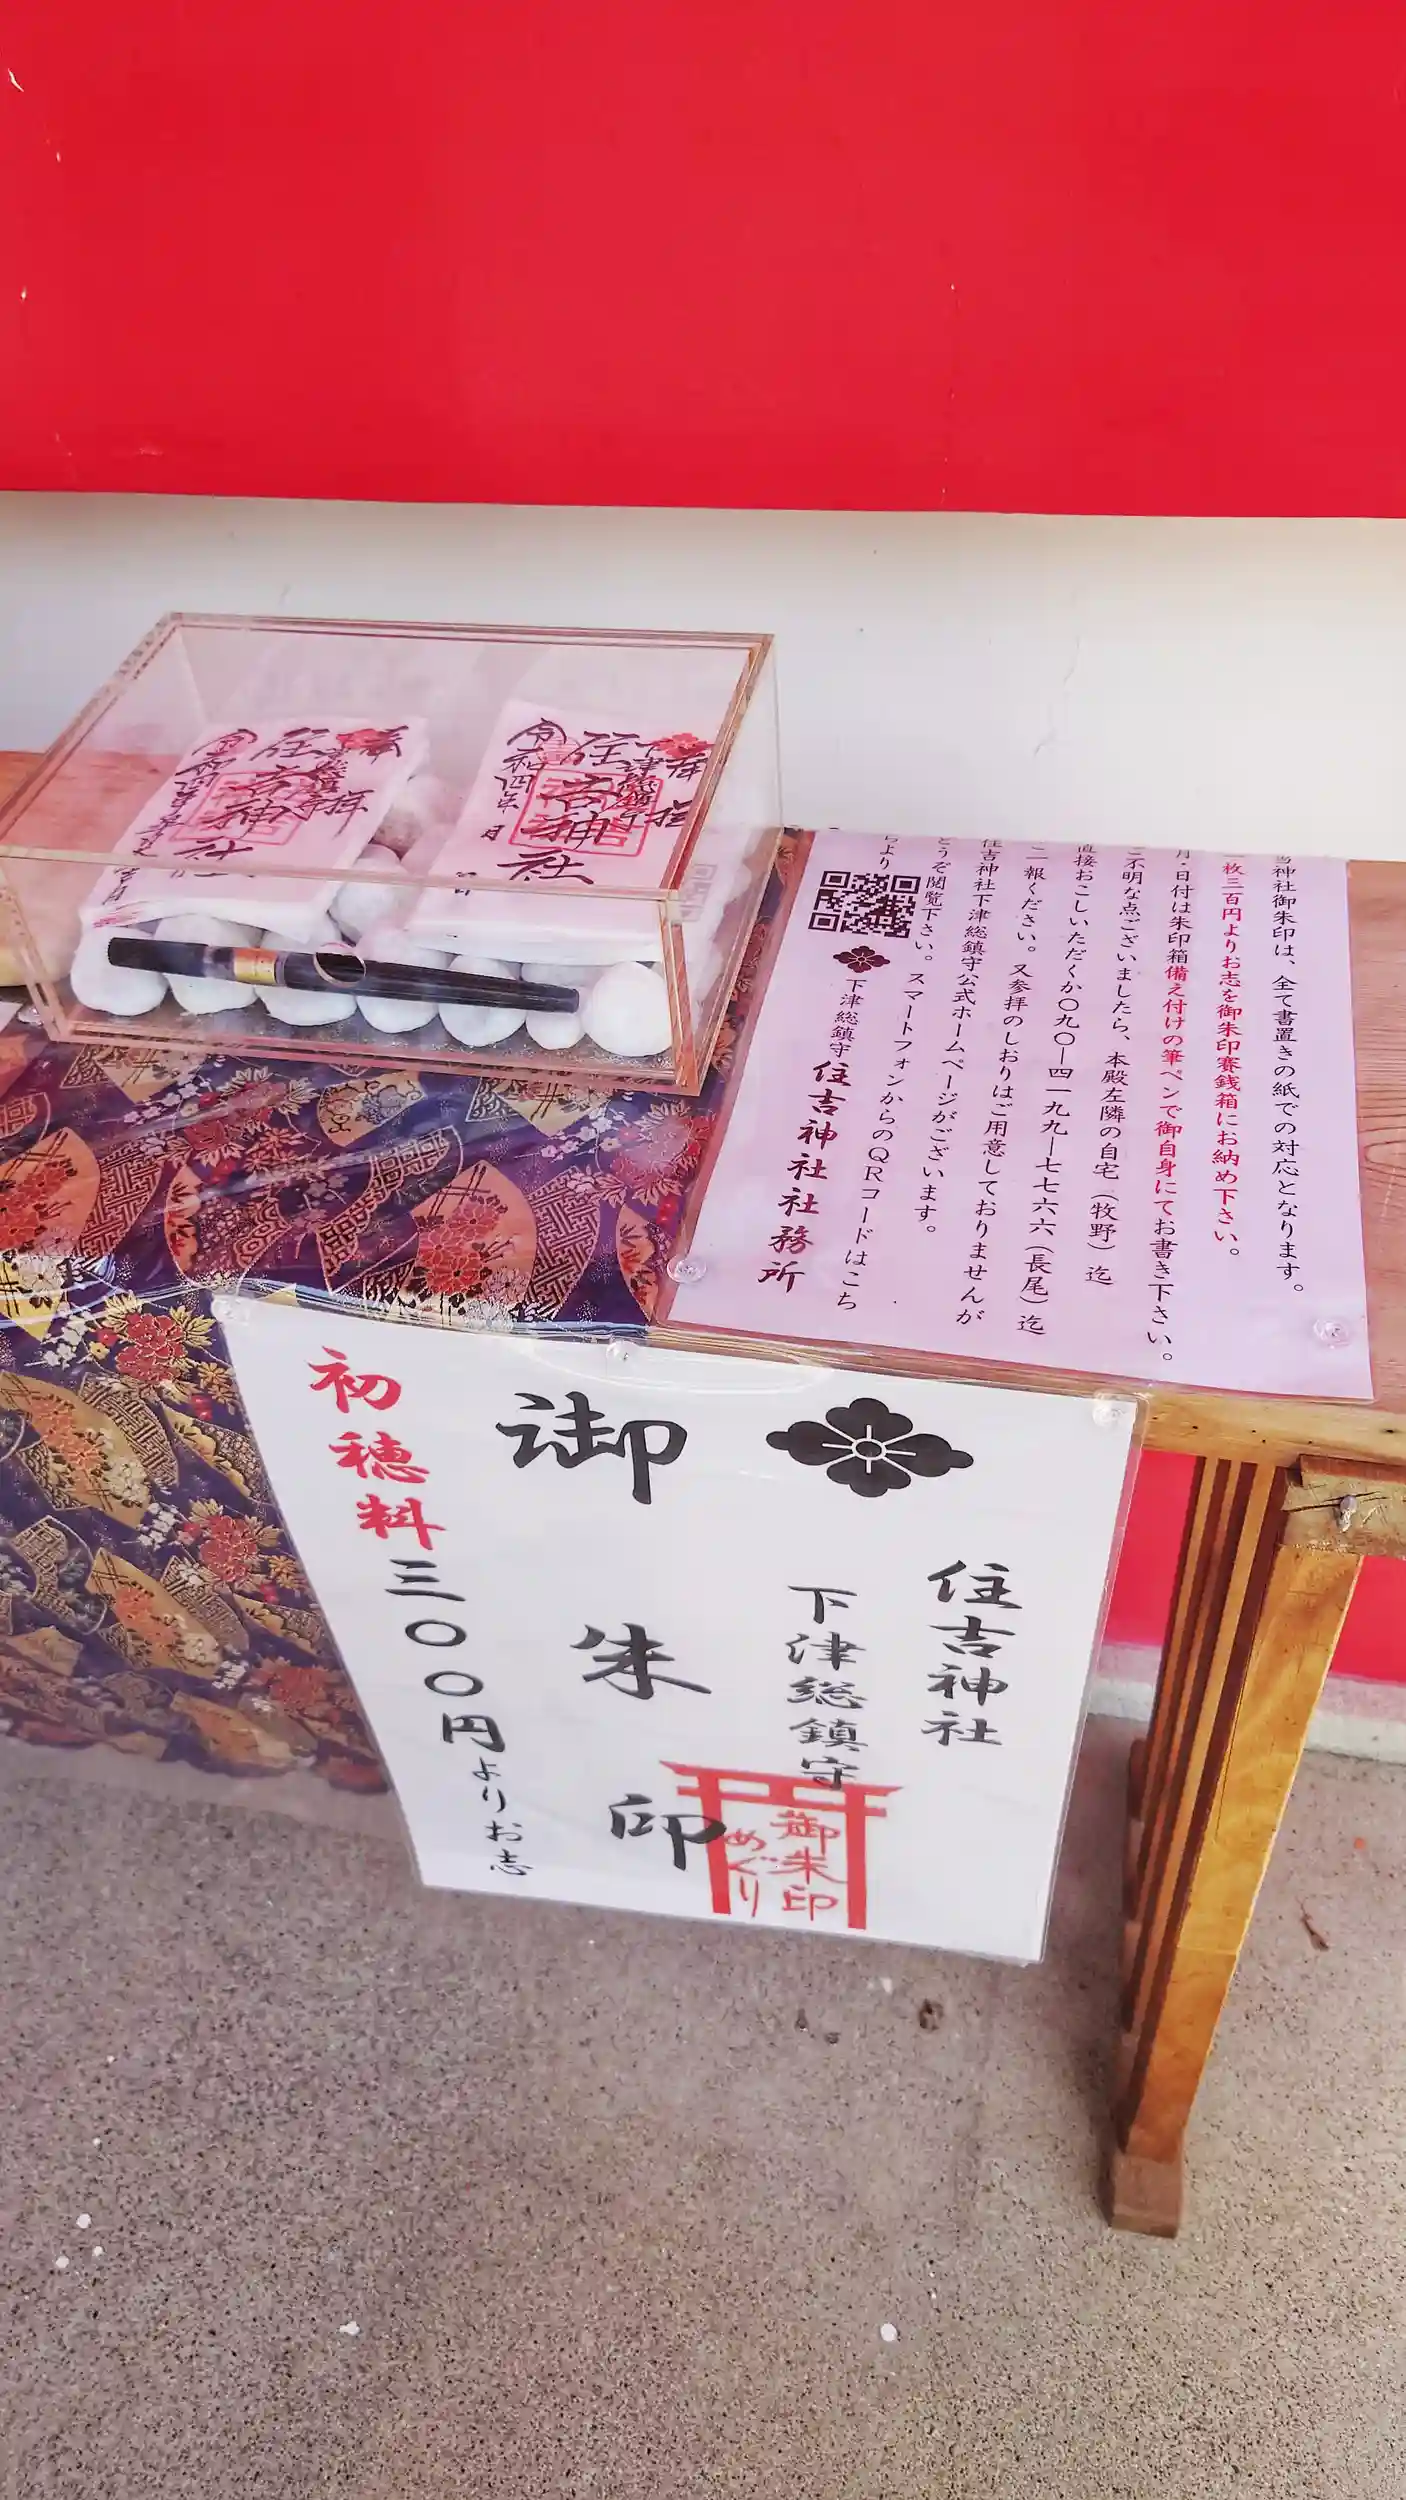 当神社御朱印は、全て書置きの紙での対応となります。
枚三百円よりお志を御朱印賽銭箱にお納め下さい。
月・日付は朱印箱備え付けの筆ペンで御自身にてお書き下さい。
不明な点ございましたら、本殿左隣の自宅(牧野)迄
直接おこしいただくか〇九〇―四一九九―七七六六(長尾)迄
一報ください。又参拝のしおりはご用意しておりませんが
住吉神社下津総鎮守公式ホームページがございます。
どうぞ閲覧下さい。スマートフォンからのQRコードはこち
らより
下津総鎮守 住吉神社社務所
住吉神社
下津総鎮守
御朱印
初穂料三〇〇円よりお志
御朱印
めぐり
奉拝
下津総鎮守
住吉神社
令和四年 月 日
住吉神社
令和四年